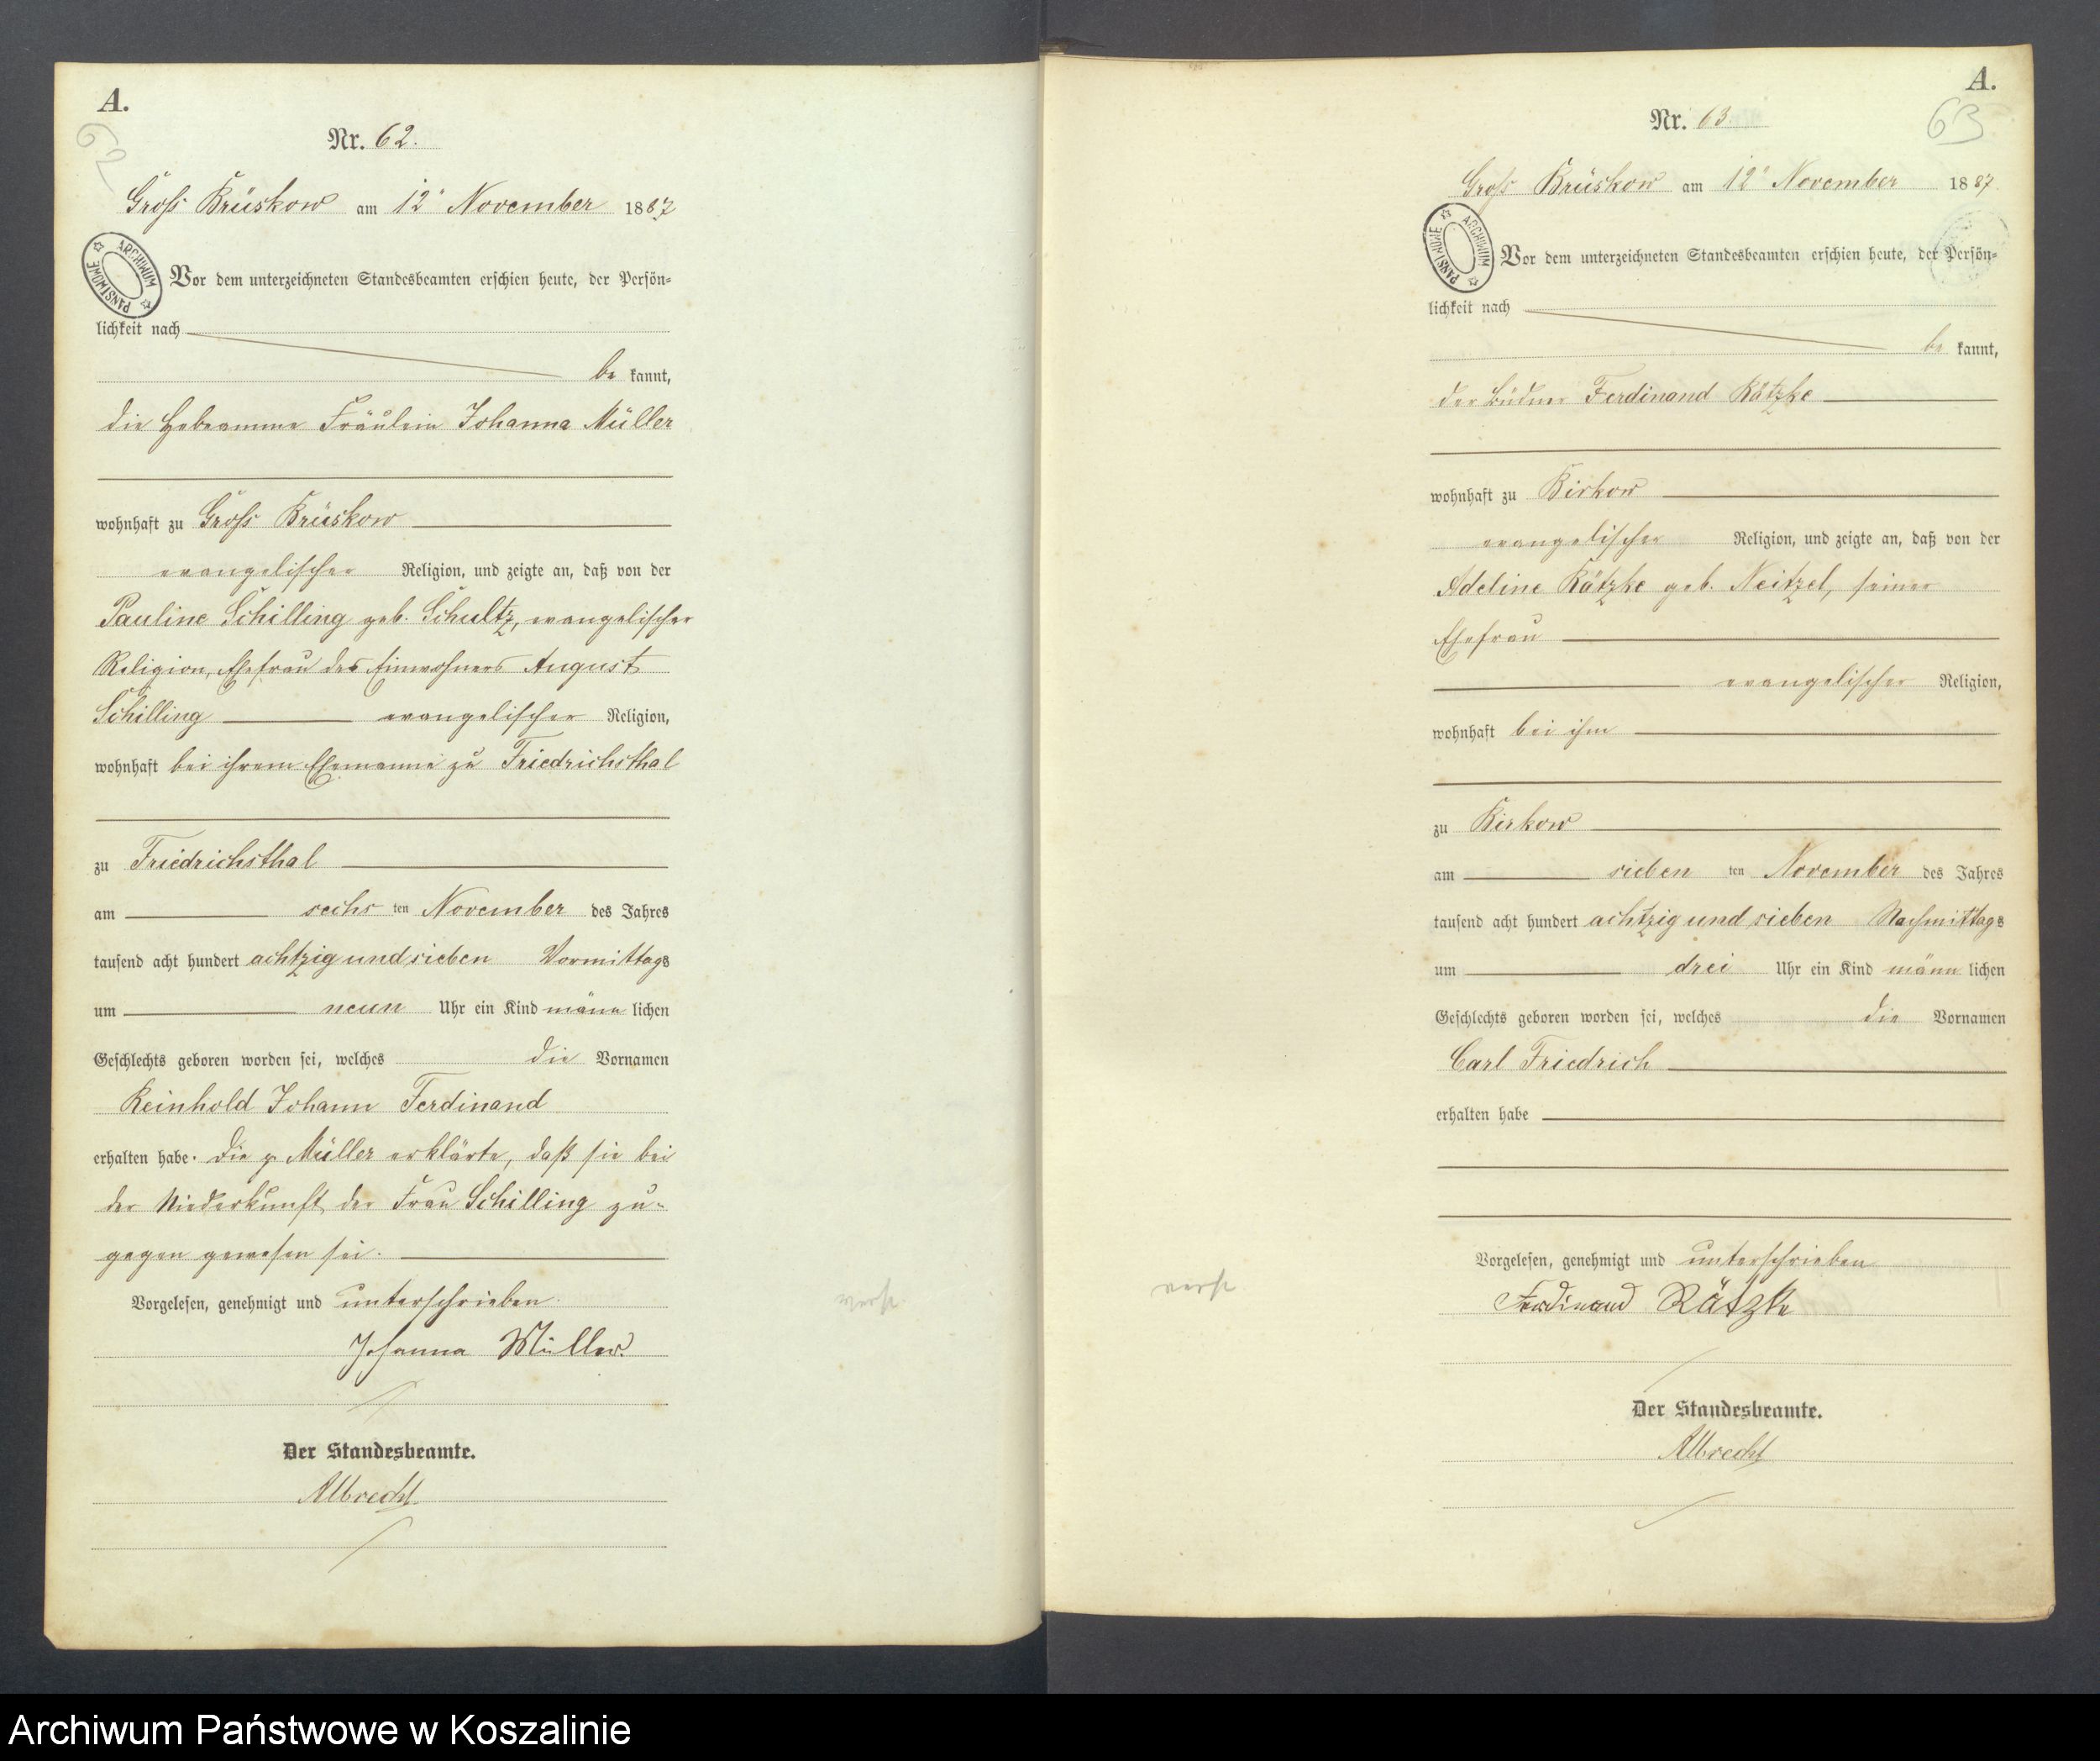 A.
62
Nr. 62.
Gross Brüskow am 12t November 1887
ARCHIWUM PAŃSTWOWE
Vor dem unterzeichneten Standesbeamten erschien heute, der Persön=
lichkeit nach
be kannt,
die Hebeamme Fräulein Johanna Müller
wohnhaft zu Gross Brüskow
evangelischer Religion, und zeigte an, daß von der
Pauline Schilling geb. Schultz, evangelischer
Religion, Ehefrau des Einwohners August
Schilling evangelischer Religion,
wohnhaft bei ihrem Ehemanne zu Friedrichsthal
zu Friedrichsthal
am sechs ten November des Jahres
tausend acht hundert achtzig und sieben Vormittags
um neun Uhr ein Kind männ lichen
Geschlechts geboren worden sei, welches die Vornamen
Reinhold Johann Ferdinand
erhalten habe. Die p Müller erklärte, daß sie bei
der Niederkunft der Frau Schilling zu=
gegen gewesen sei.
Vorgelesen, genehmigt und unterschrieben.
Johanna Müller.
Der Standesbeamte.
Albrecht
A.
63
Nr. 63
Gross Brüskow am 12t November 1887
ARCHIWUM PAŃSTWOWE
Vor dem unterzeichneten Standesbeamten erschien heute, der Persön=
lichkeit nach
be kannt,
der Büdner Ferdinand Rätzke
wohnhaft zu Birkow
evangelischer Religion, und zeigte an, daß von der
Adeline Rätzke geb. Neitzel, seiner
Ehefrau
evangelischer Religion,
wohnhaft bei ihm
zu Birkow
am sieben ten November des Jahres
tausend acht hundert achtzig und sieben Nachmittags
um drei Uhr ein Kind männ lichen
Geschlechts geboren worden sei, welches die Vornamen
Carl Friedrich
erhalten habe
Vorgelesen, genehmigt und unterschrieben
Ferdinand Rätzke
Der Standesbeamte.
Albrecht
Archiwum Państwowe w Koszalinie